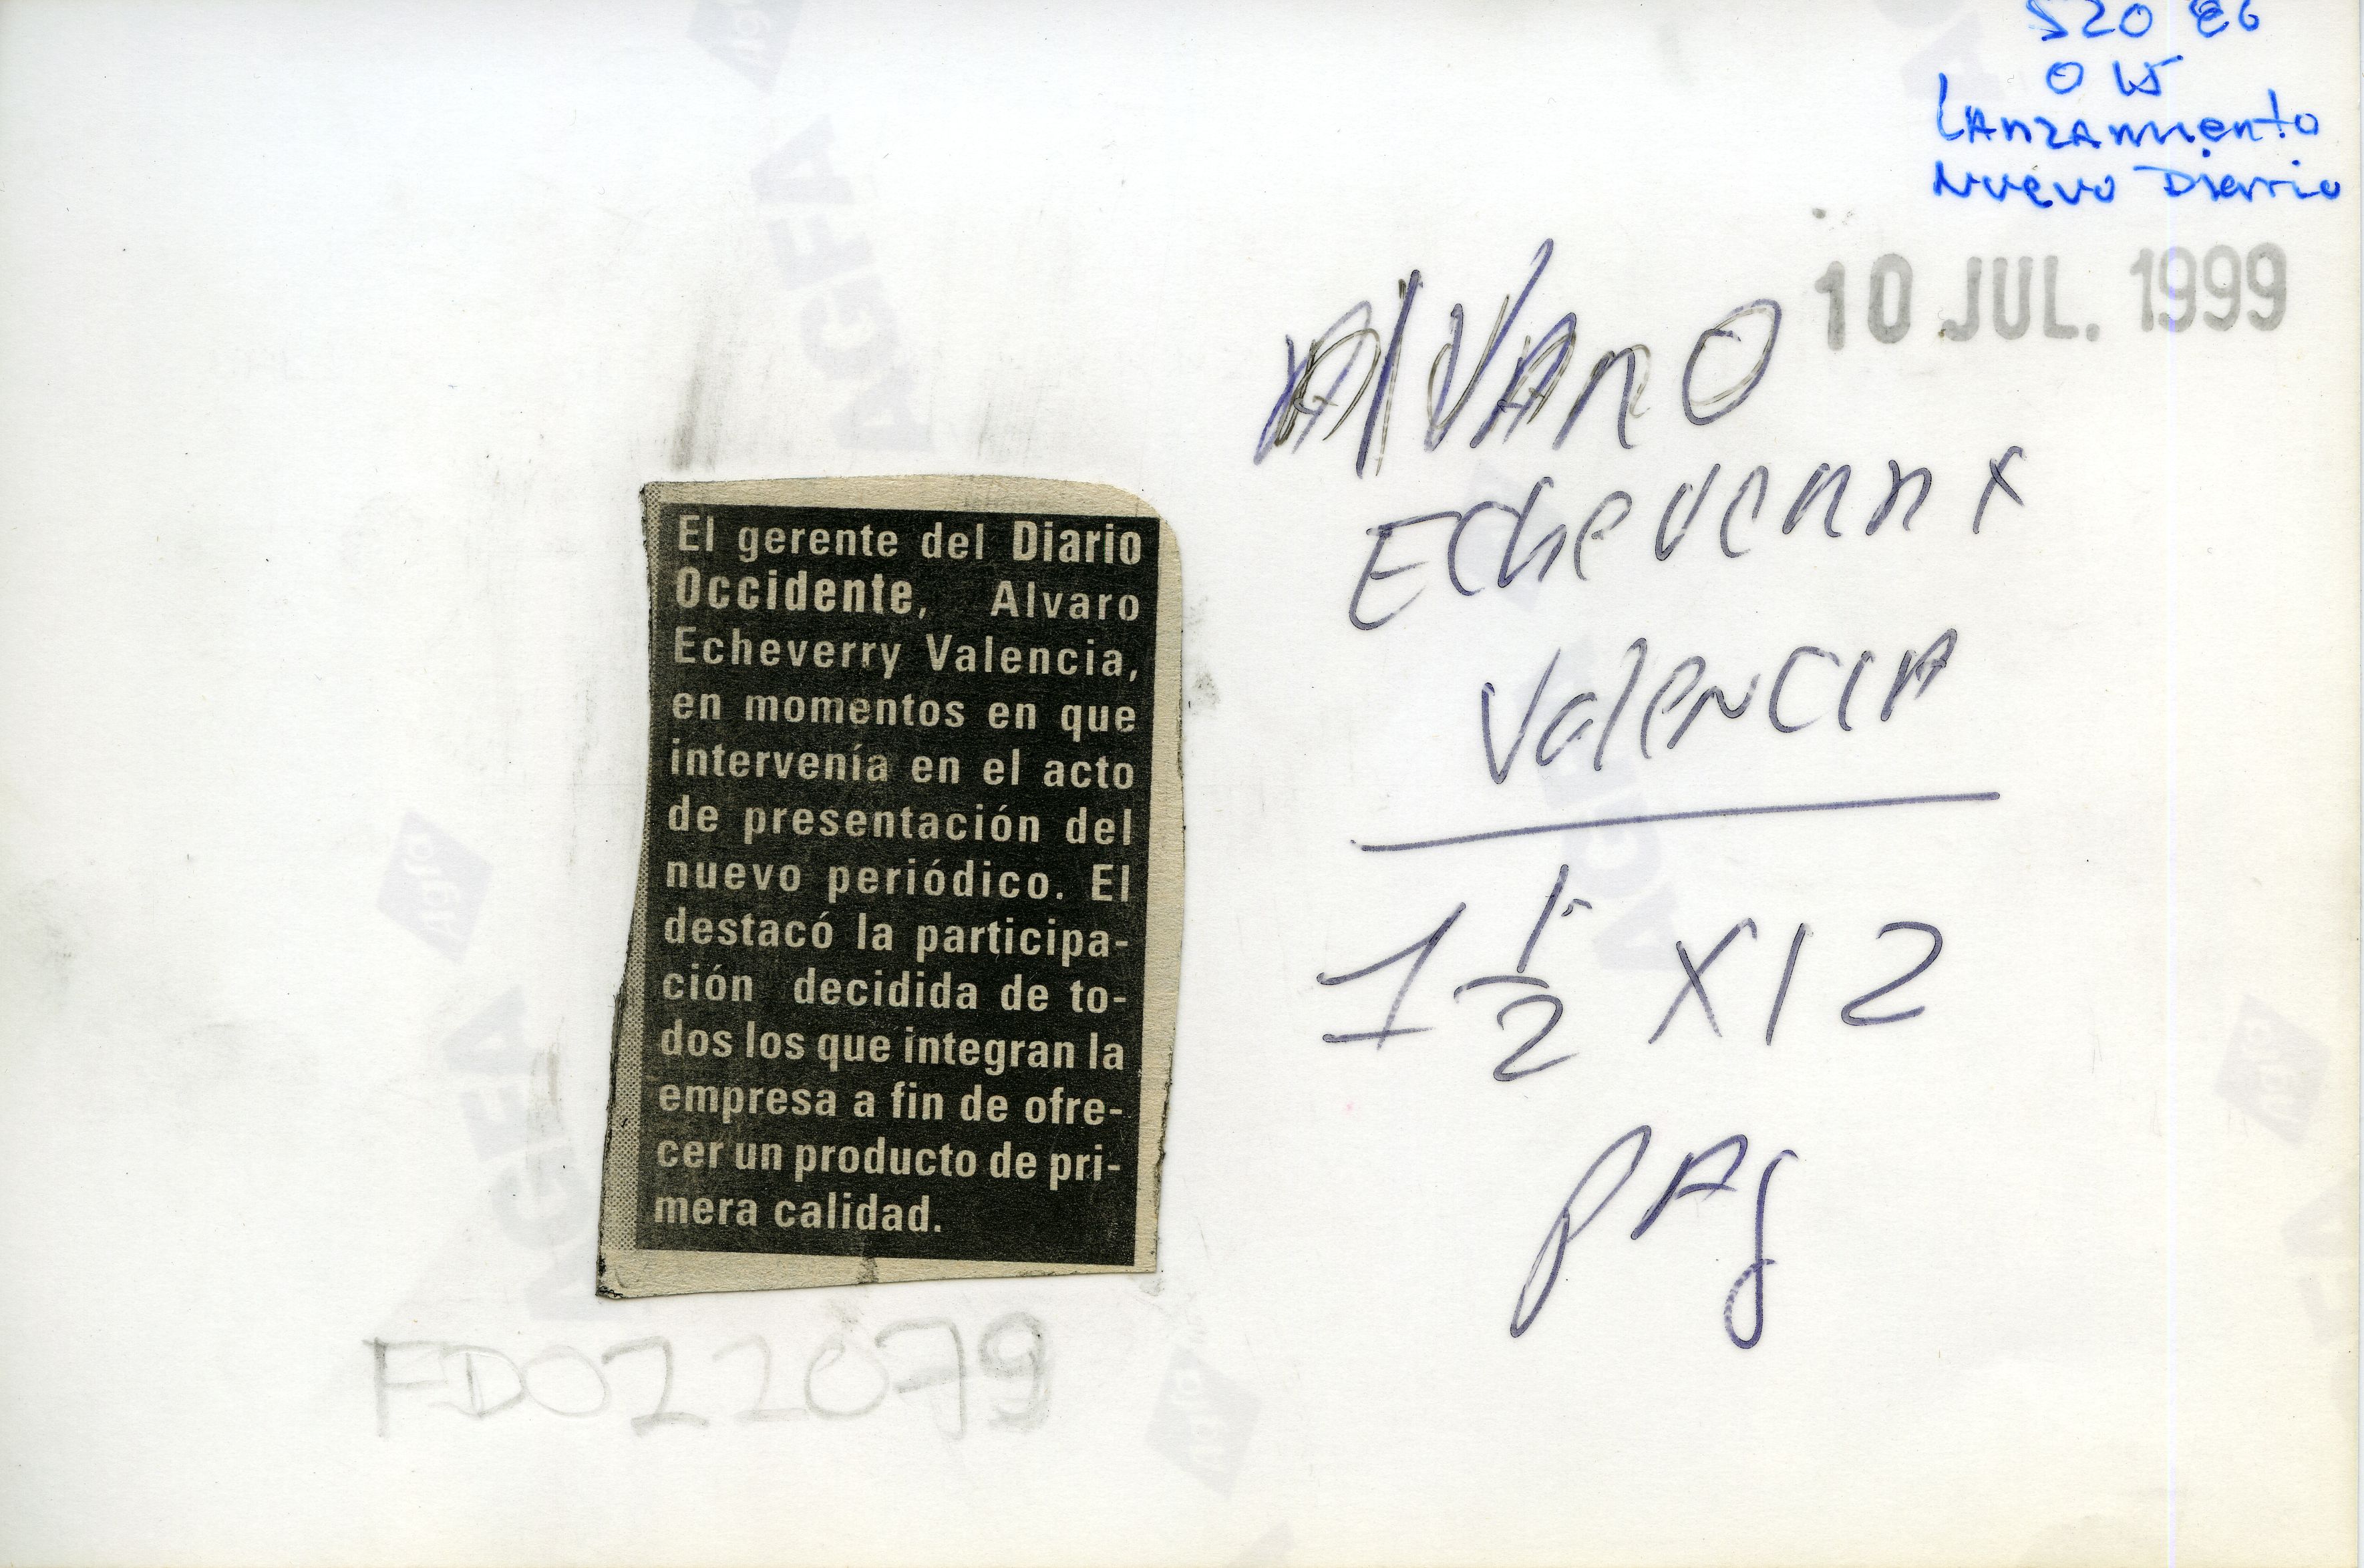 520 86
0 15
Lanzamiento
Nuevo Diario
10 JUL. 1999
Alvaro
Echeverry
Valencia
1 1/2 X 12
PAg
El gerente del Diario
Occidente, Alvaro
Echeverry Valencia,
en momentos en que
intervenía en el acto
de presentación del
nuevo periódico. El
destacó la participa-
ción decidida de to-
dos los que integran la
empresa a fin de ofre-
cer un producto de pri-
mera calidad.
FD022079
AGFA
Agfa